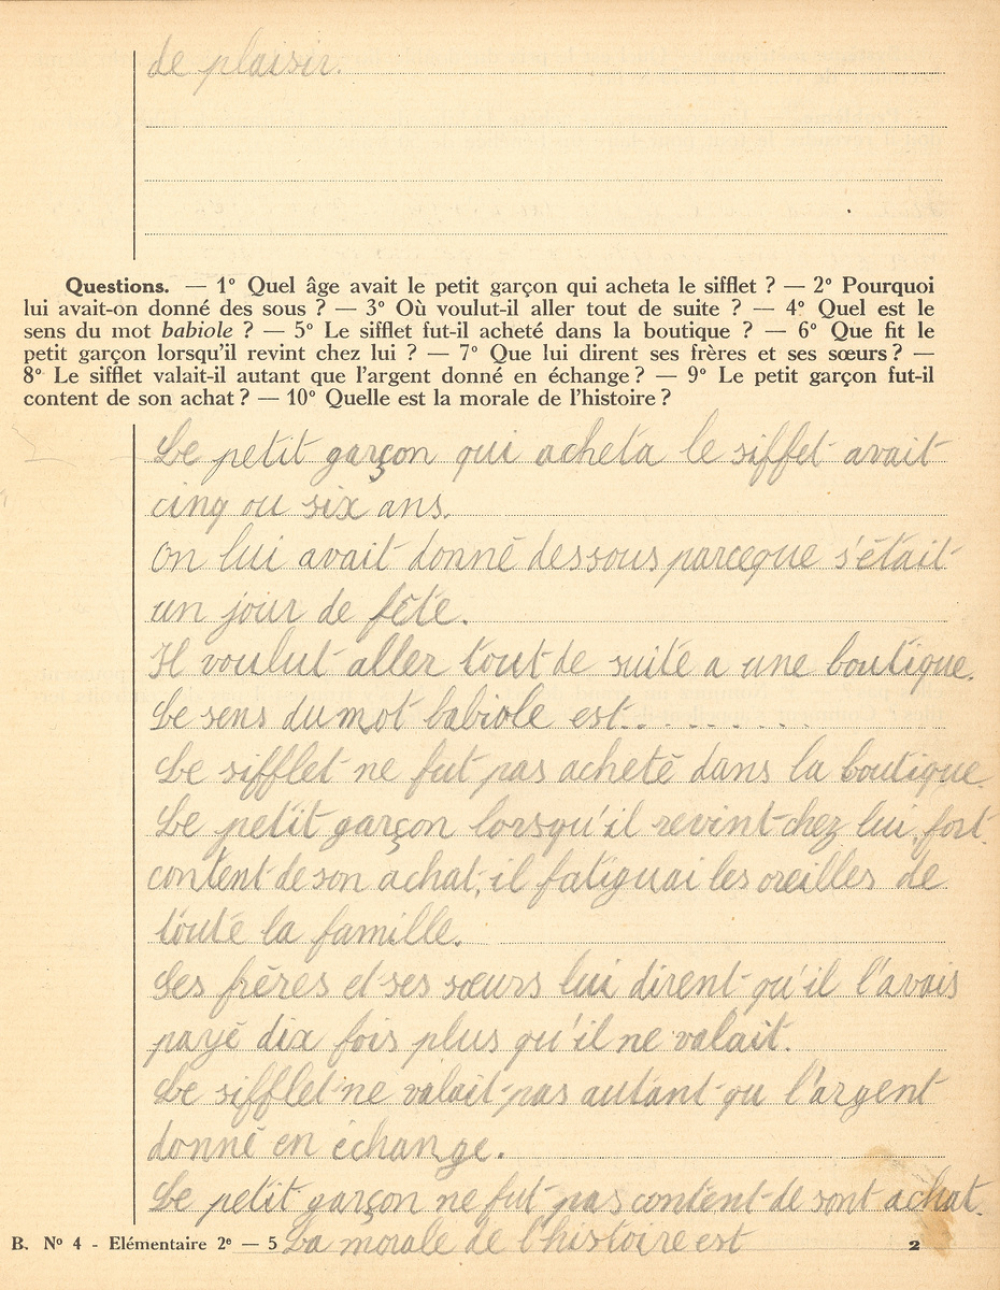 de plaisir.
Questions. — 1º Quel âge avait le petit garçon qui acheta le sifflet ? — 2º Pourquoi
lui avait-on donné des sous ? — 3º Où voulut-il aller tout de suite ? — 4º Quel est le
sens du mot babiole ? — 5º Le sifflet fut-il acheté dans la boutique ? — 6º Que fit le
petit garçon lorsqu'il revint chez lui ? — 7º Que lui dirent ses frères et ses sœurs ? —
8º Le sifflet valait-il autant que l'argent donné en échange ? — 9º Le petit garçon fut-il
content de son achat ? — 10º Quelle est la morale de l'histoire ?
Le petit garçon qui acheta le siffet avait
cinq ou six ans.
On lui avait donné des sous parceque s'était
un jour de fête.
Il voulut aller tout de suite a une boutique.
Le sens du mot babiole est.........
Le sifflet ne fut pas acheté dans la boutique.
Le petit garçon lorsqu'il revint chez lui, fort
content de son achat, il fatiguai les oreilles de
toute la famille.
Ses frères et ses sœurs lui dirent qu'il l'avais
payé dix fois plus qu'il ne valait.
Le sifflet ne valait pas autant qu l'argent
donné en échange.
Le petit garçon ne fut pas content de sont achat.
B. Nº 4 - Elémentaire 2e — 5 La morale de l'histoire est 2